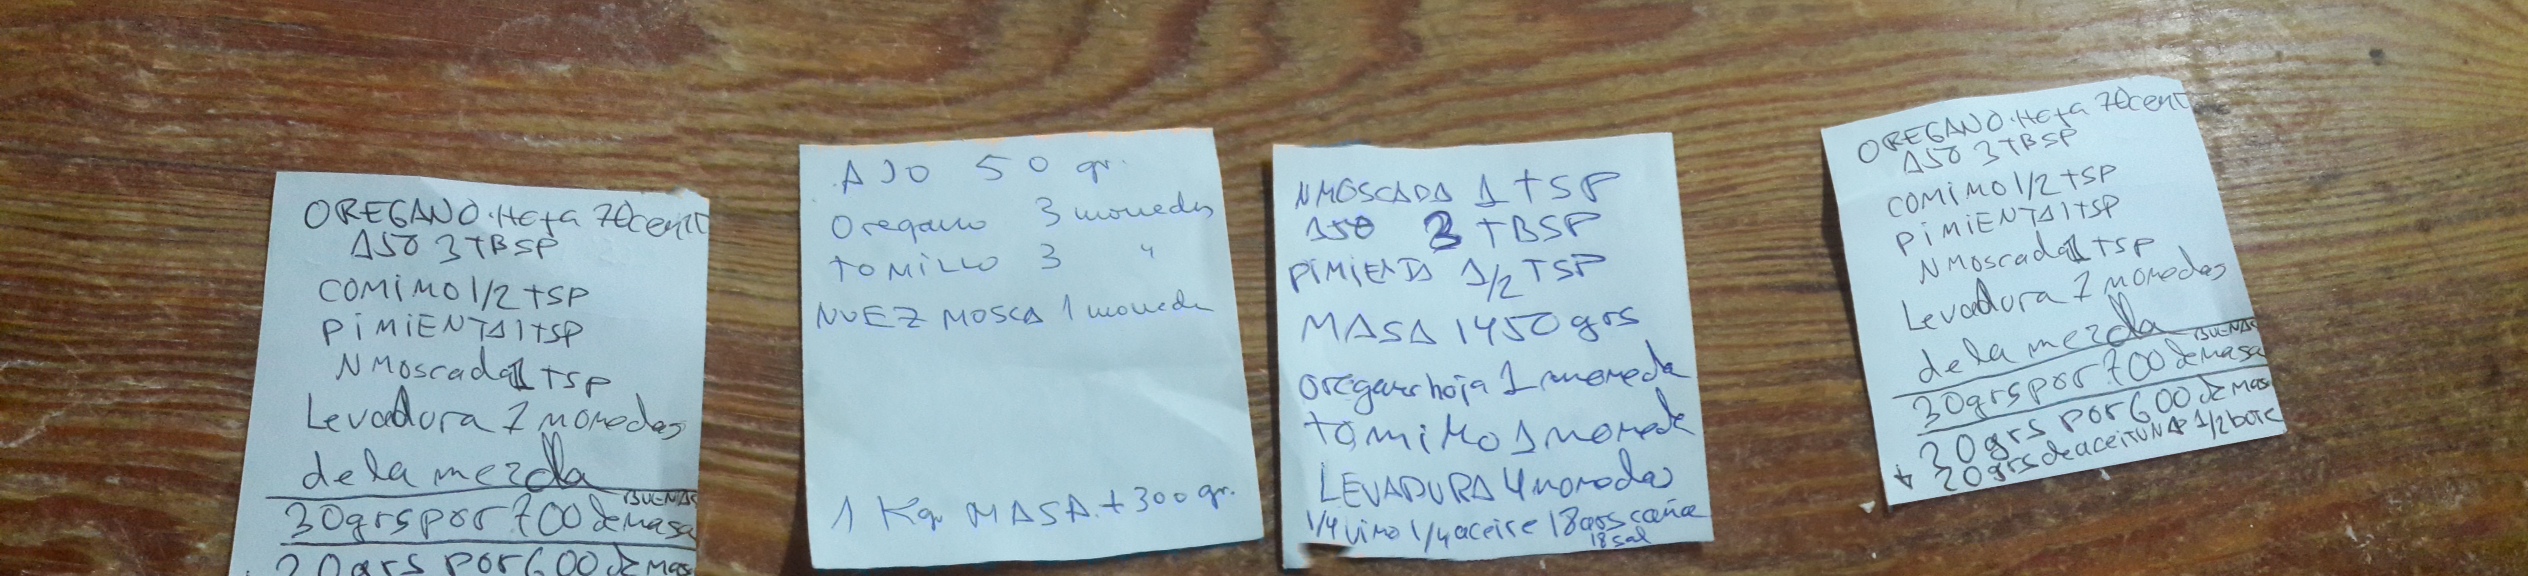 OREGANO
AJO 3 TBSP
COMIMO 1/2 TSP
PIMIENTA 1 TSP
N Moscada 1 TSP
Levadura 7 monedas
de la mezcla
BUENAS
30grs por 700 de masa
20grs por 600 de masa
AJO 50 gr.
Oregano 3 monedas
TOMILLO 3 "
NUEZ MOSCA 1 moneda
1 Kgr MASA + 300 gr.
NMOSCADA 1 TSP
AJO 3 TBSP
PIMIENTA 1/2 TSP
MASA 1450 grs
oregano hoja 1 moneda
tomillo 1 moneda
LEVADURA 4 monedas
1/4 vino 1/4 aceite 18 grs caña
18 sal
OREGANO
AJO 3 TBSP
COMIMO 1/2 TSP
PIMIENTA 1 TSP
N Moscada 1 TSP
Levadura 7 monedas
de la mezcla
BUENAS
30grs por 700 de masa
20grs por 600 de masa
+ 20grs de aceituna 1/2 bote